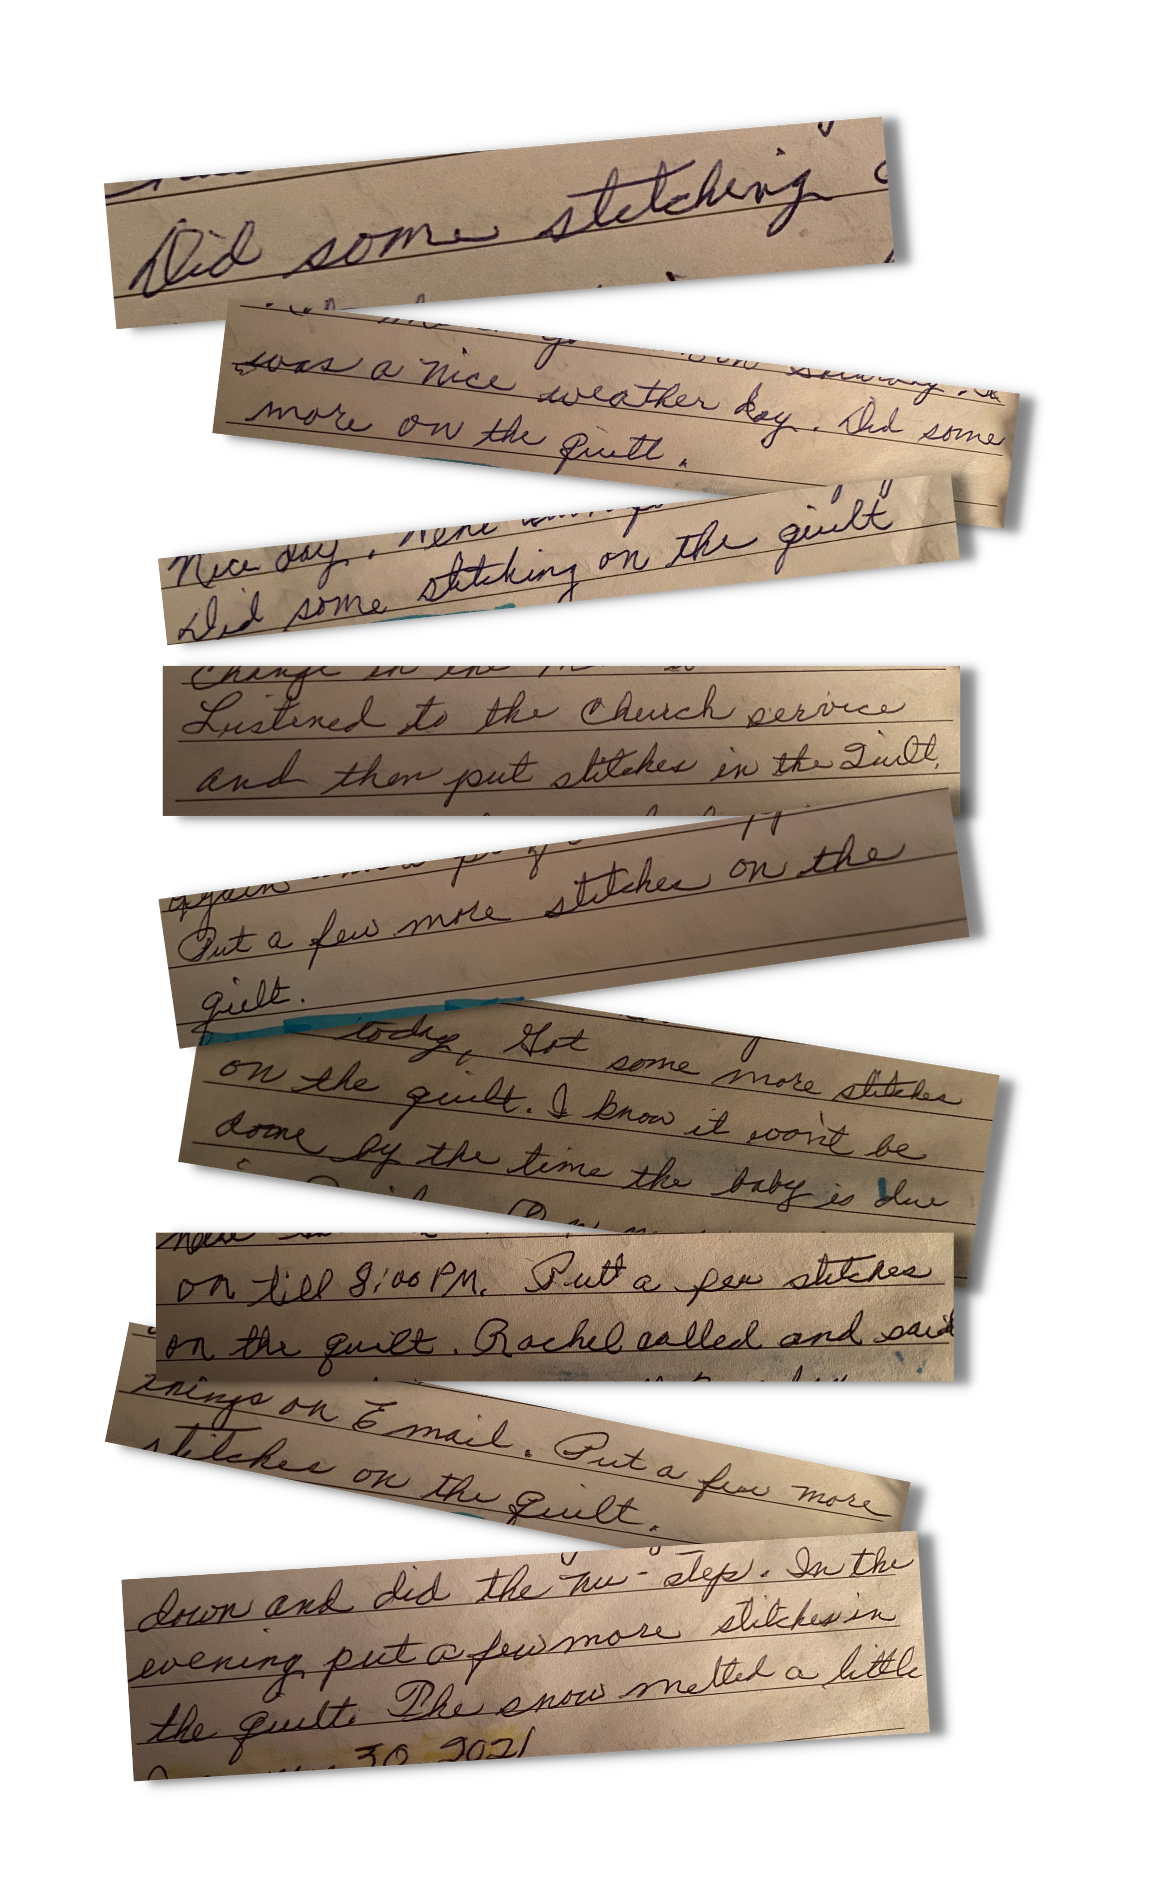 Did some stitching
was a nice weather day. Did some
more on the quilt.
Nice day.
Did some stitking on the quilt
Change in the
Listened to the Church service
and then put stitches in the Quilt.
again
Put a few more stitches on the
quilt.
today, Got some more stitches
on the quilt. I know it won't be
done by the time the baby is due
on till 8:00 PM. Put a few stitches
on the quilt. Rachel called and said
things on Email. Put a few more
stitches on the quilt.
down and did the nu-step. In the
evening put a few more stitches in
the quilt. The snow melted a little
30 2021